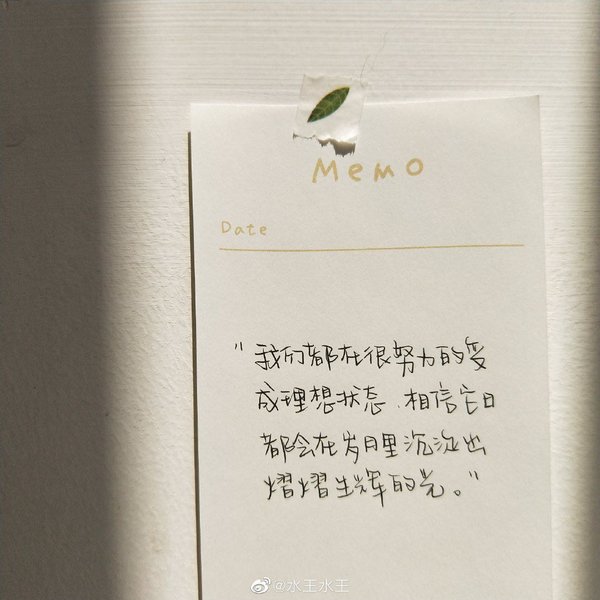 Memo
Date
"我们都在很努力的变
成理想状态,相信它日
都会在岁月里沉淀出
熠熠生辉的光。"
@水王水王